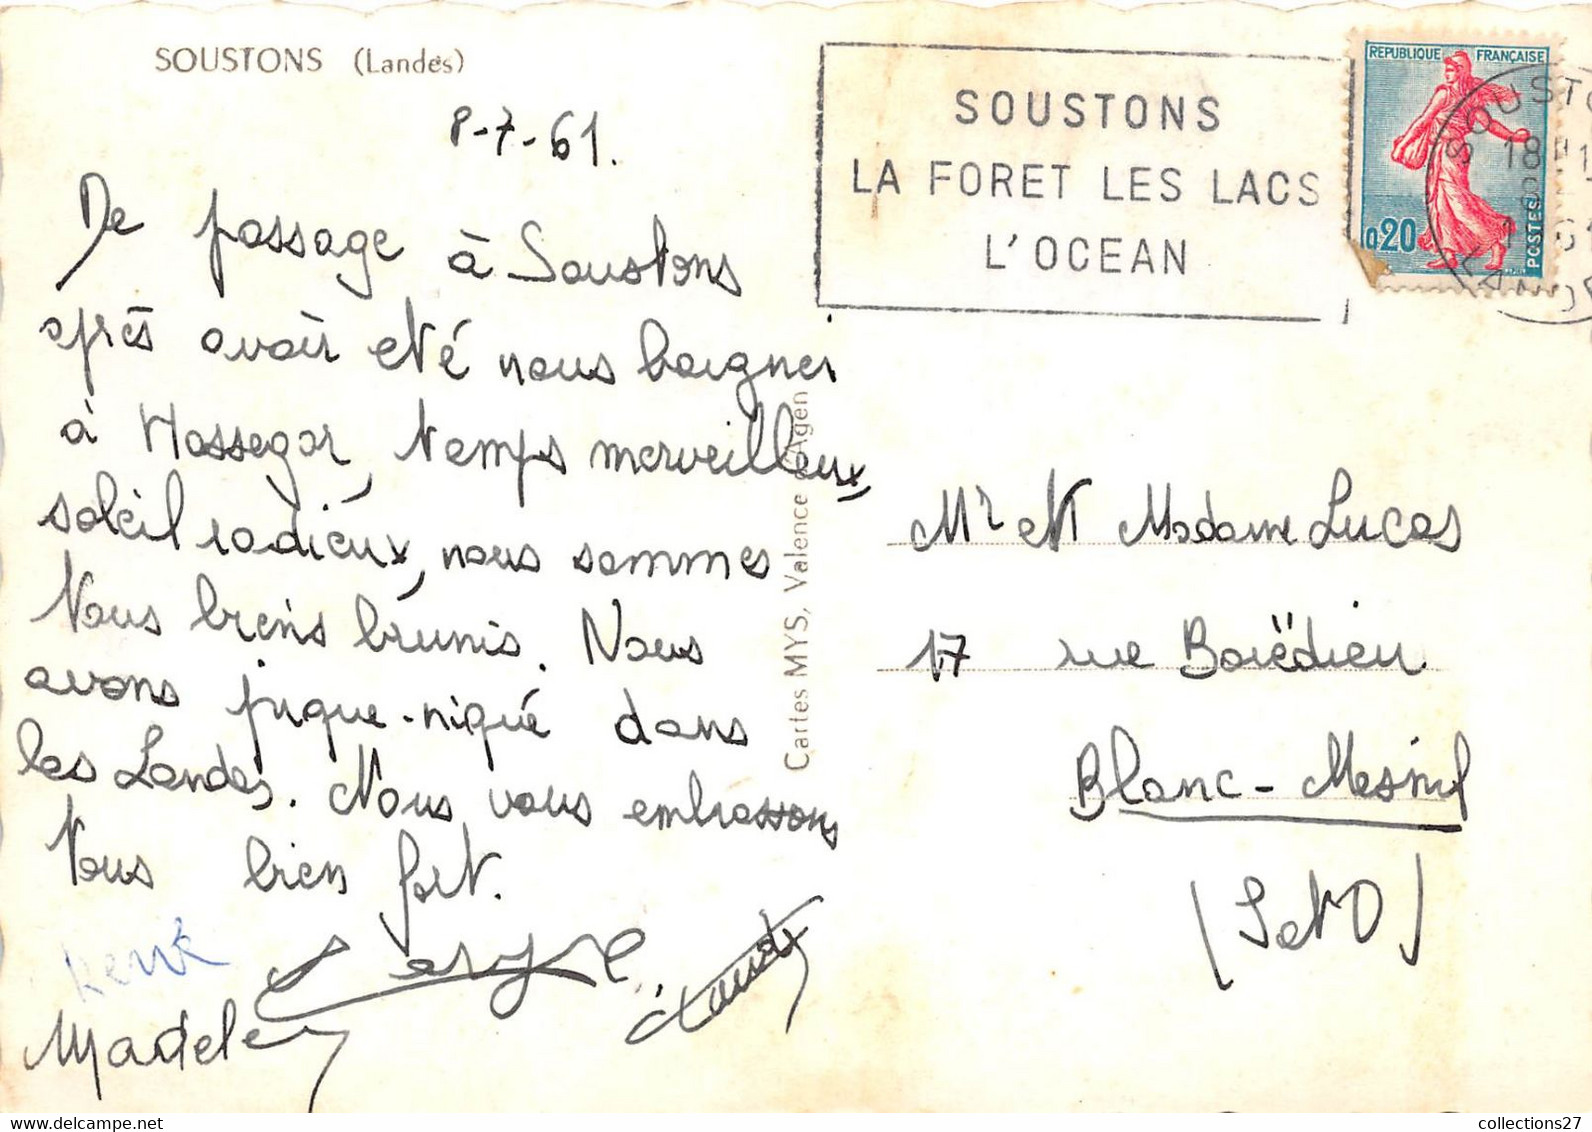 SOUSTONS (Landes)
8-7-61.
De passage à Soustons
après avoir été nous baigner
à Hossegor, temps merveilleux,
soleil radieux, nous sommes
tous biens brunis. Nous
avons pique-niqué dans
les Landes. Nous vous embrassons
tous bien fort.
Serge
Claude
Madele
Cartes MYS, Valence d'Agen
SOUSTONS
LA FORET LES LACS
L'OCEAN
REPUBLIQUE FRANÇAISE
0,20
POSTES
SOUSTO
18H
8
61
LANDE
Mr et Madame Lucas
17 rue Boiëdieu
Blanc-Mesnil
(S et O)
collections27